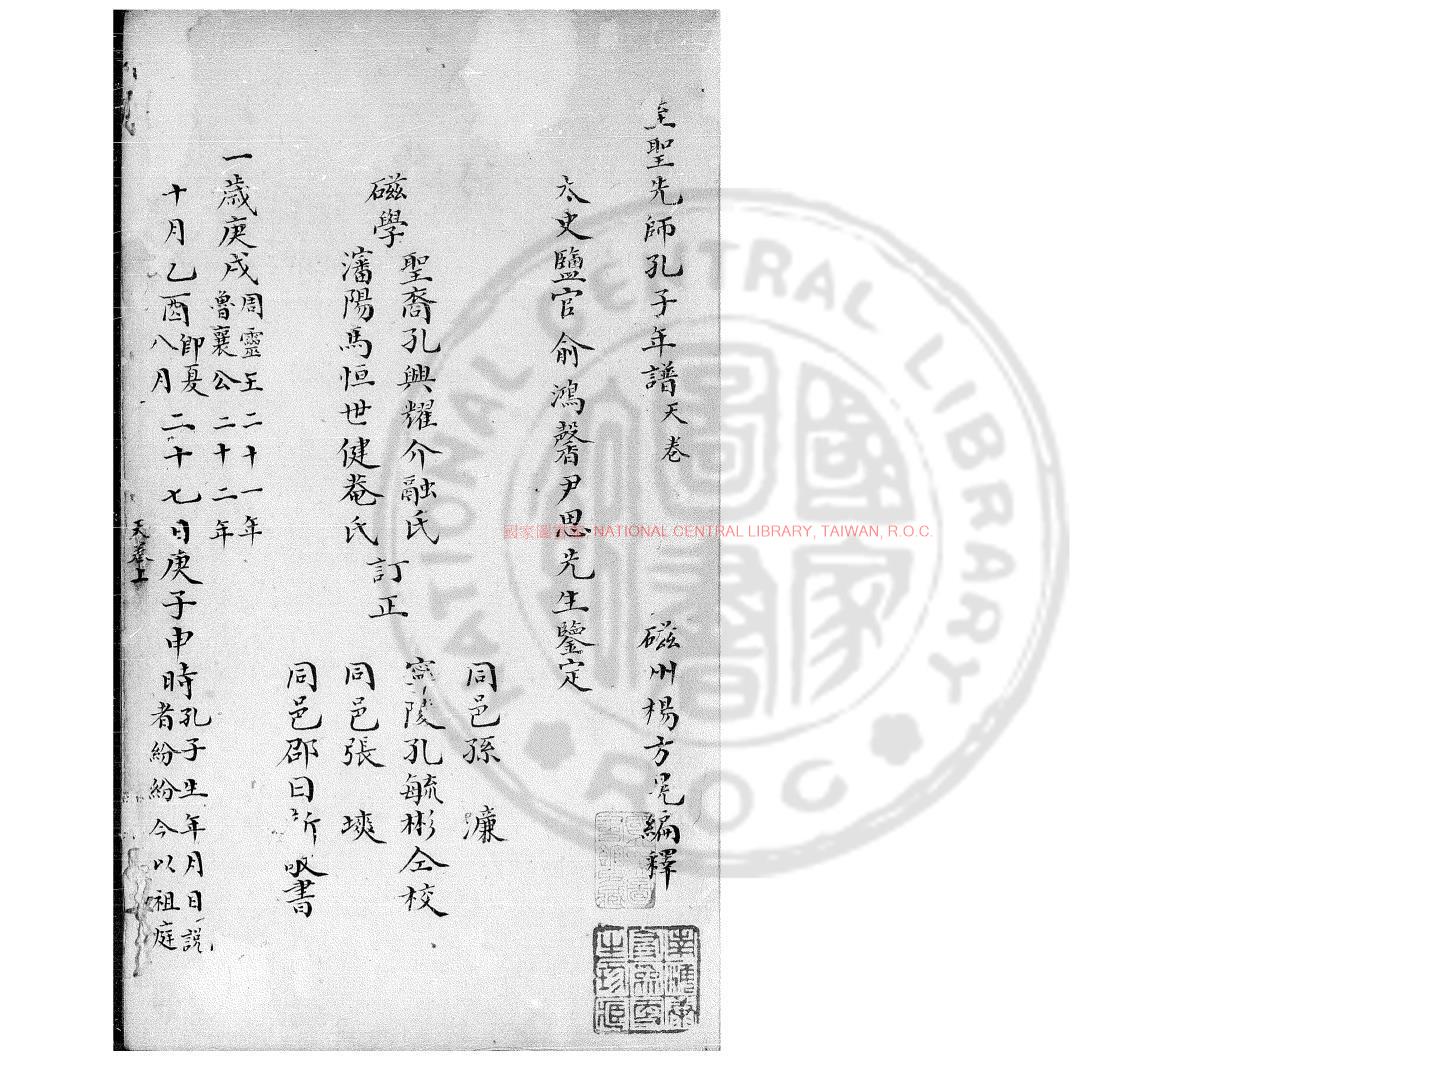 至聖先師孔子年譜天卷
磁州楊方晃編釋
太史鹽官俞鴻馨尹思先生鑒定
同邑孫 濂
磁學
聖裔孔興耀介融氏
瀋陽馬恒世健菴氏
訂正
寧陵孔毓彬仝校
同邑張 㙷
同邑邵曰
書
一歲庚戌周靈王二十一年
魯襄公二十二年
十月乙酉即夏
八月二十七日庚子申時孔子生年月日說
者紛紛今以祖庭
天卷上
國家圖書館 NATIONAL CENTRAL LIBRARY, TAIWAN, R.O.C.
NATIONAL CENTRAL LIBRARY
ROC